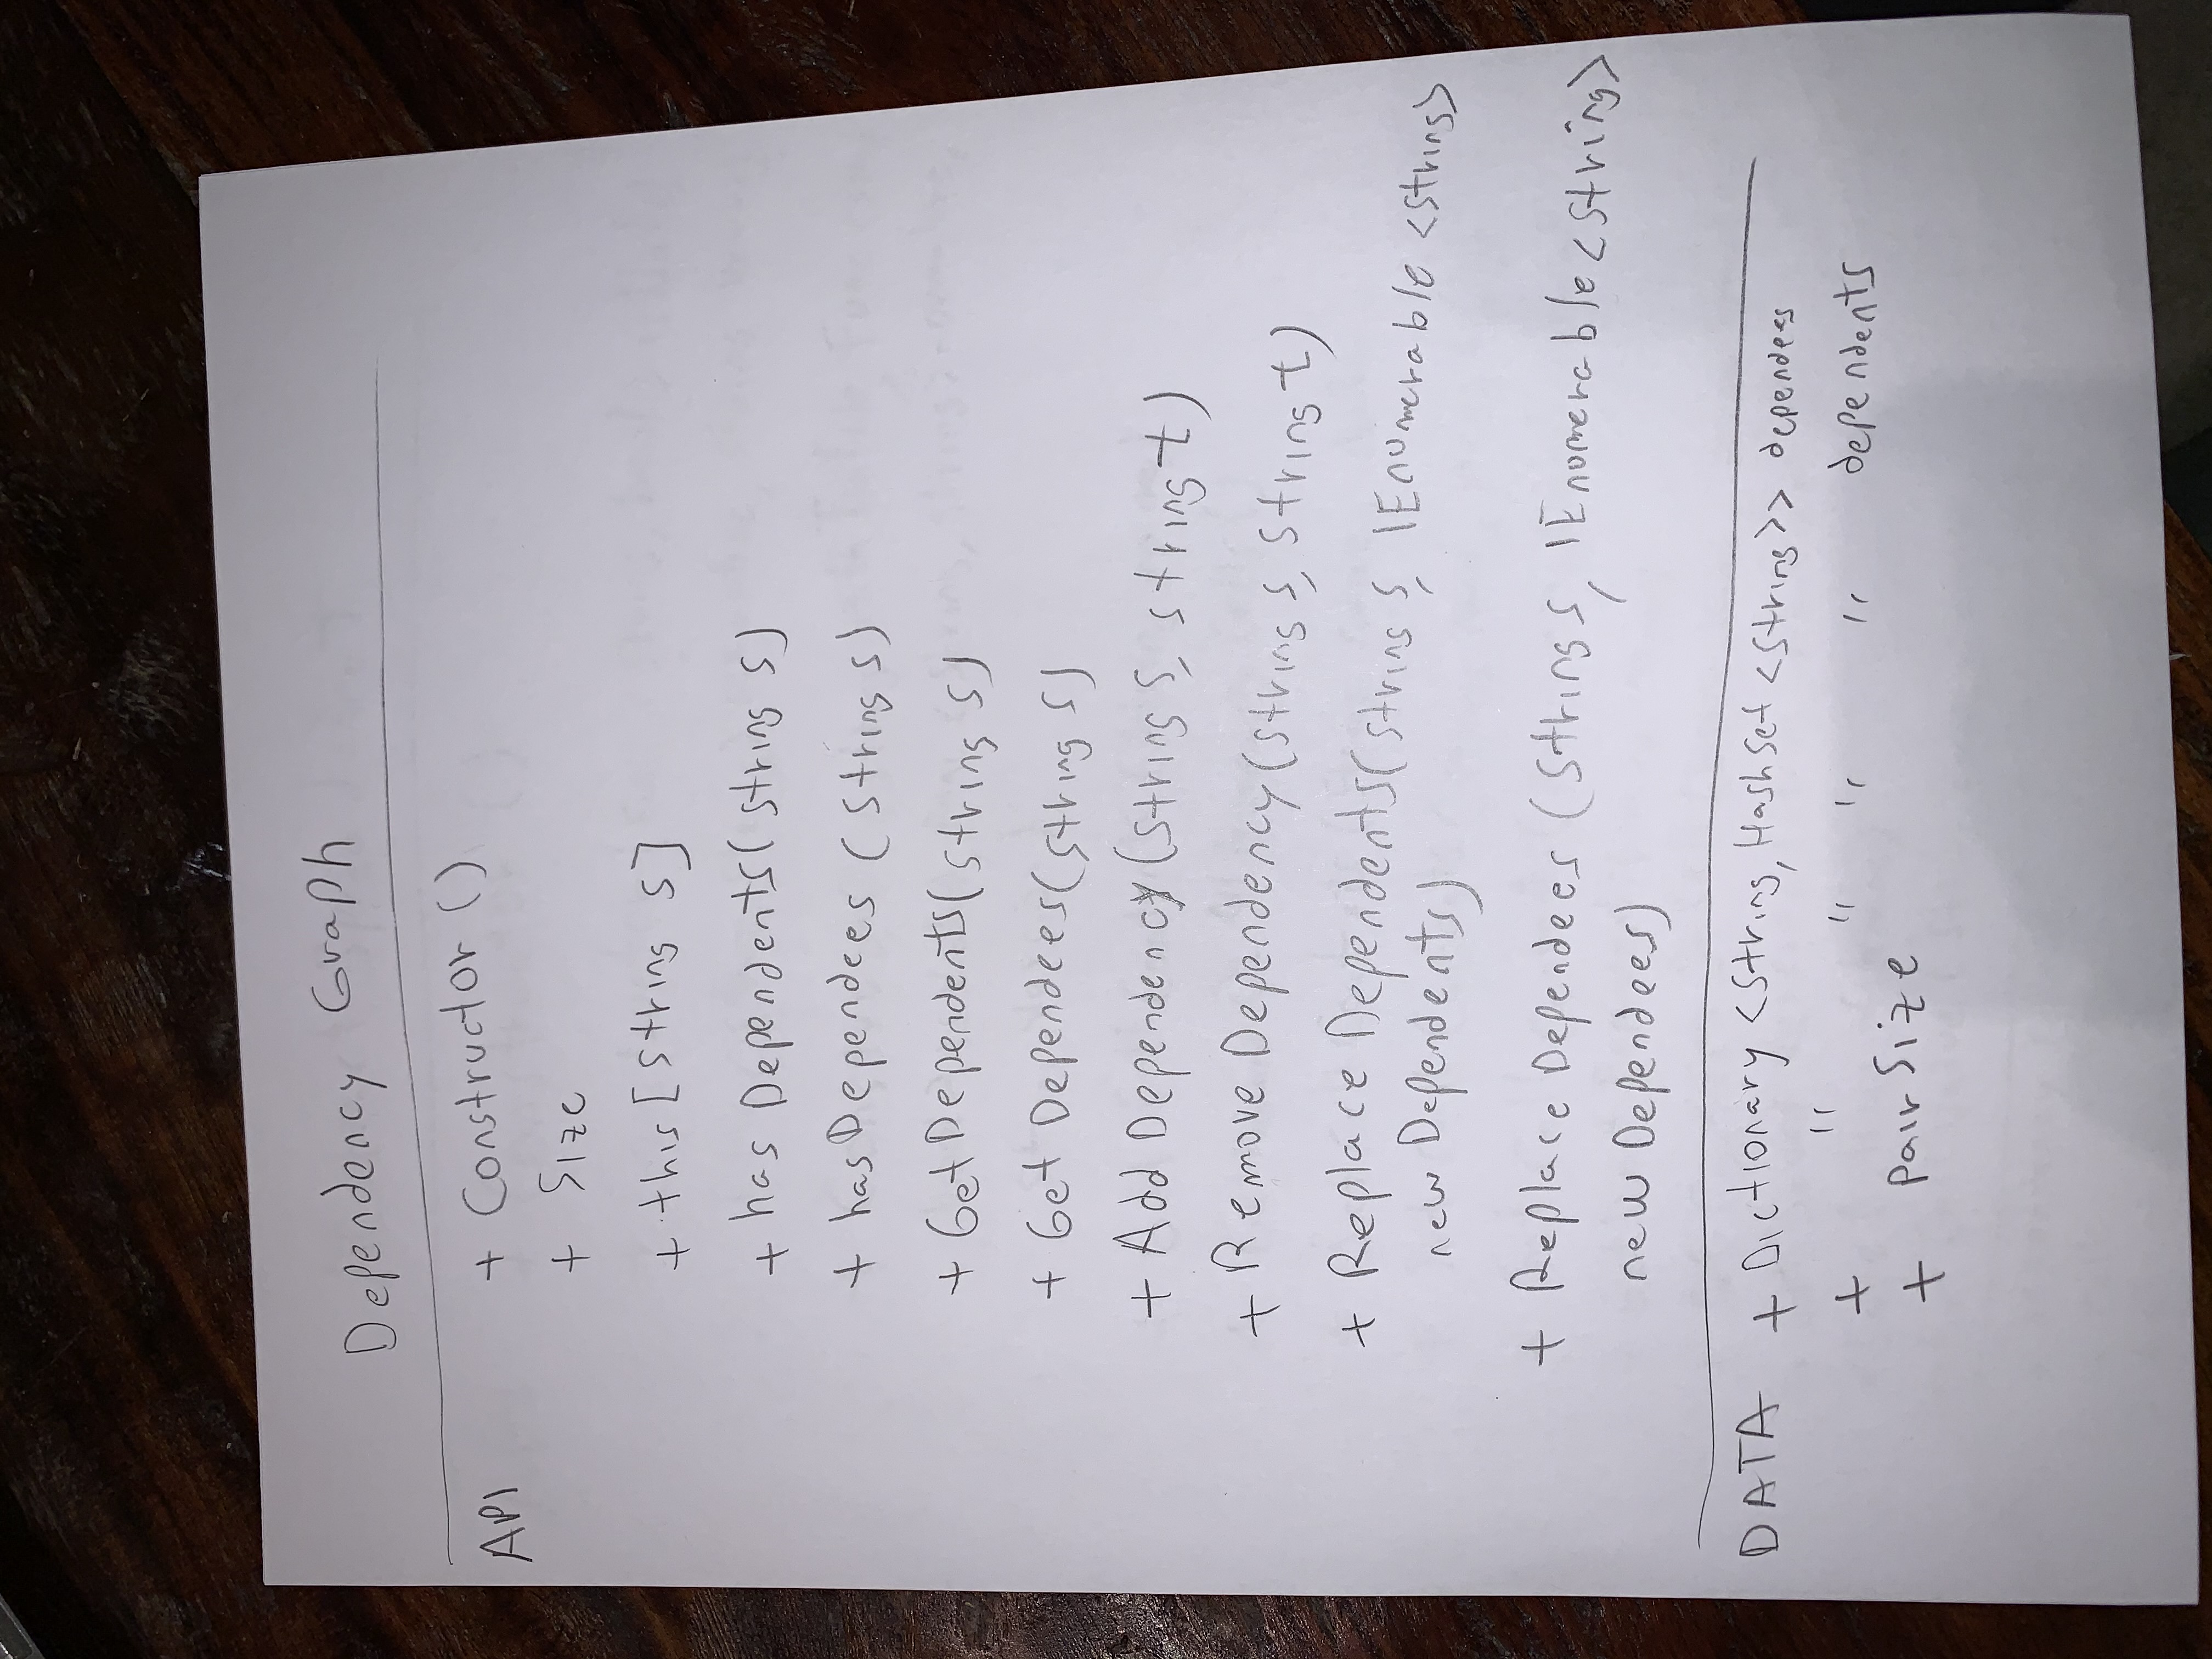 Dependency Graph
API + Constructor ()
+ Size
+ this [string s]
+ has Dependents(string s)
+ hasDependees (string s)
+ Get Dependents(string s)
+ Get Dependees(string s)
+ Add Dependency (string s, string t)
+ Remove Dependency(string s, string t)
+ Replace Dependents(string s, IEnumerable <string>
new Dependents)
+ Replace Dependees (string s, IEnumerable <string>
new Dependees)
DATA + Dictionary <string, HashSet <string>> dependees
+ " " " " dependents
+ pairSize